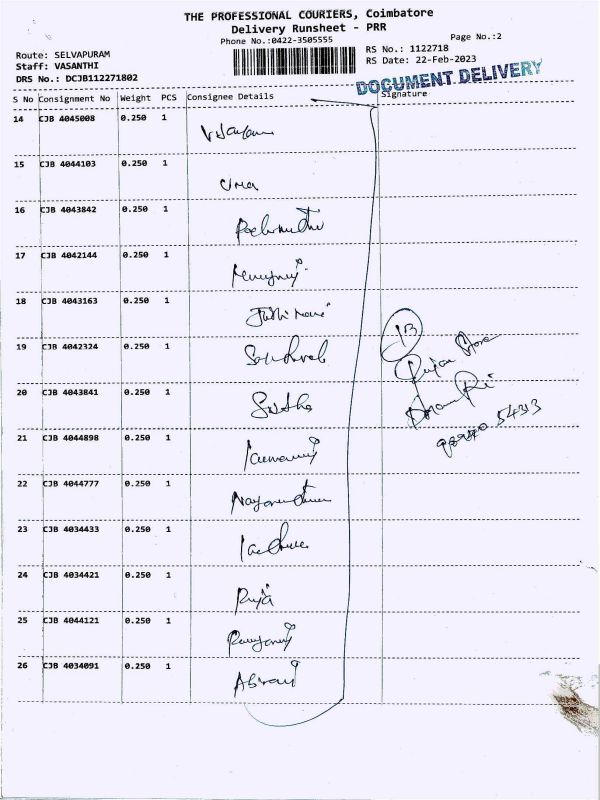 THE PROFESSIONAL COURIERS, Coimbatore
Delivery Runsheet - PRR
Phone No.:0422-3505555
Page No.:2
Route: SELVAPURAM
RS No.: 1122718
Staff: VASANTHI
RS Date: 22-Feb-2023
DRS No.: DCJB112271802
DOCUMENT DELIVERY
S No Consignment No Weight PCS Consignee Details Signature
14 CJB 4045008 0.250 1
15 CJB 4044103 0.250 1 Uma
16 CJB 4043842 0.250 1
17 CJB 4042144 0.250 1
18 CJB 4043163 0.250 1
19 CJB 4042324 0.250 1
13
20 CJB 4043841 0.250 1
21 CJB 4044898 0.250 1
22 CJB 4044777 0.250 1
23 CJB 4034433 0.250 1
24 CJB 4034421 0.250 1 Puja
25 CJB 4044121 0.250 1
26 CJB 4034091 0.250 1 Abirami